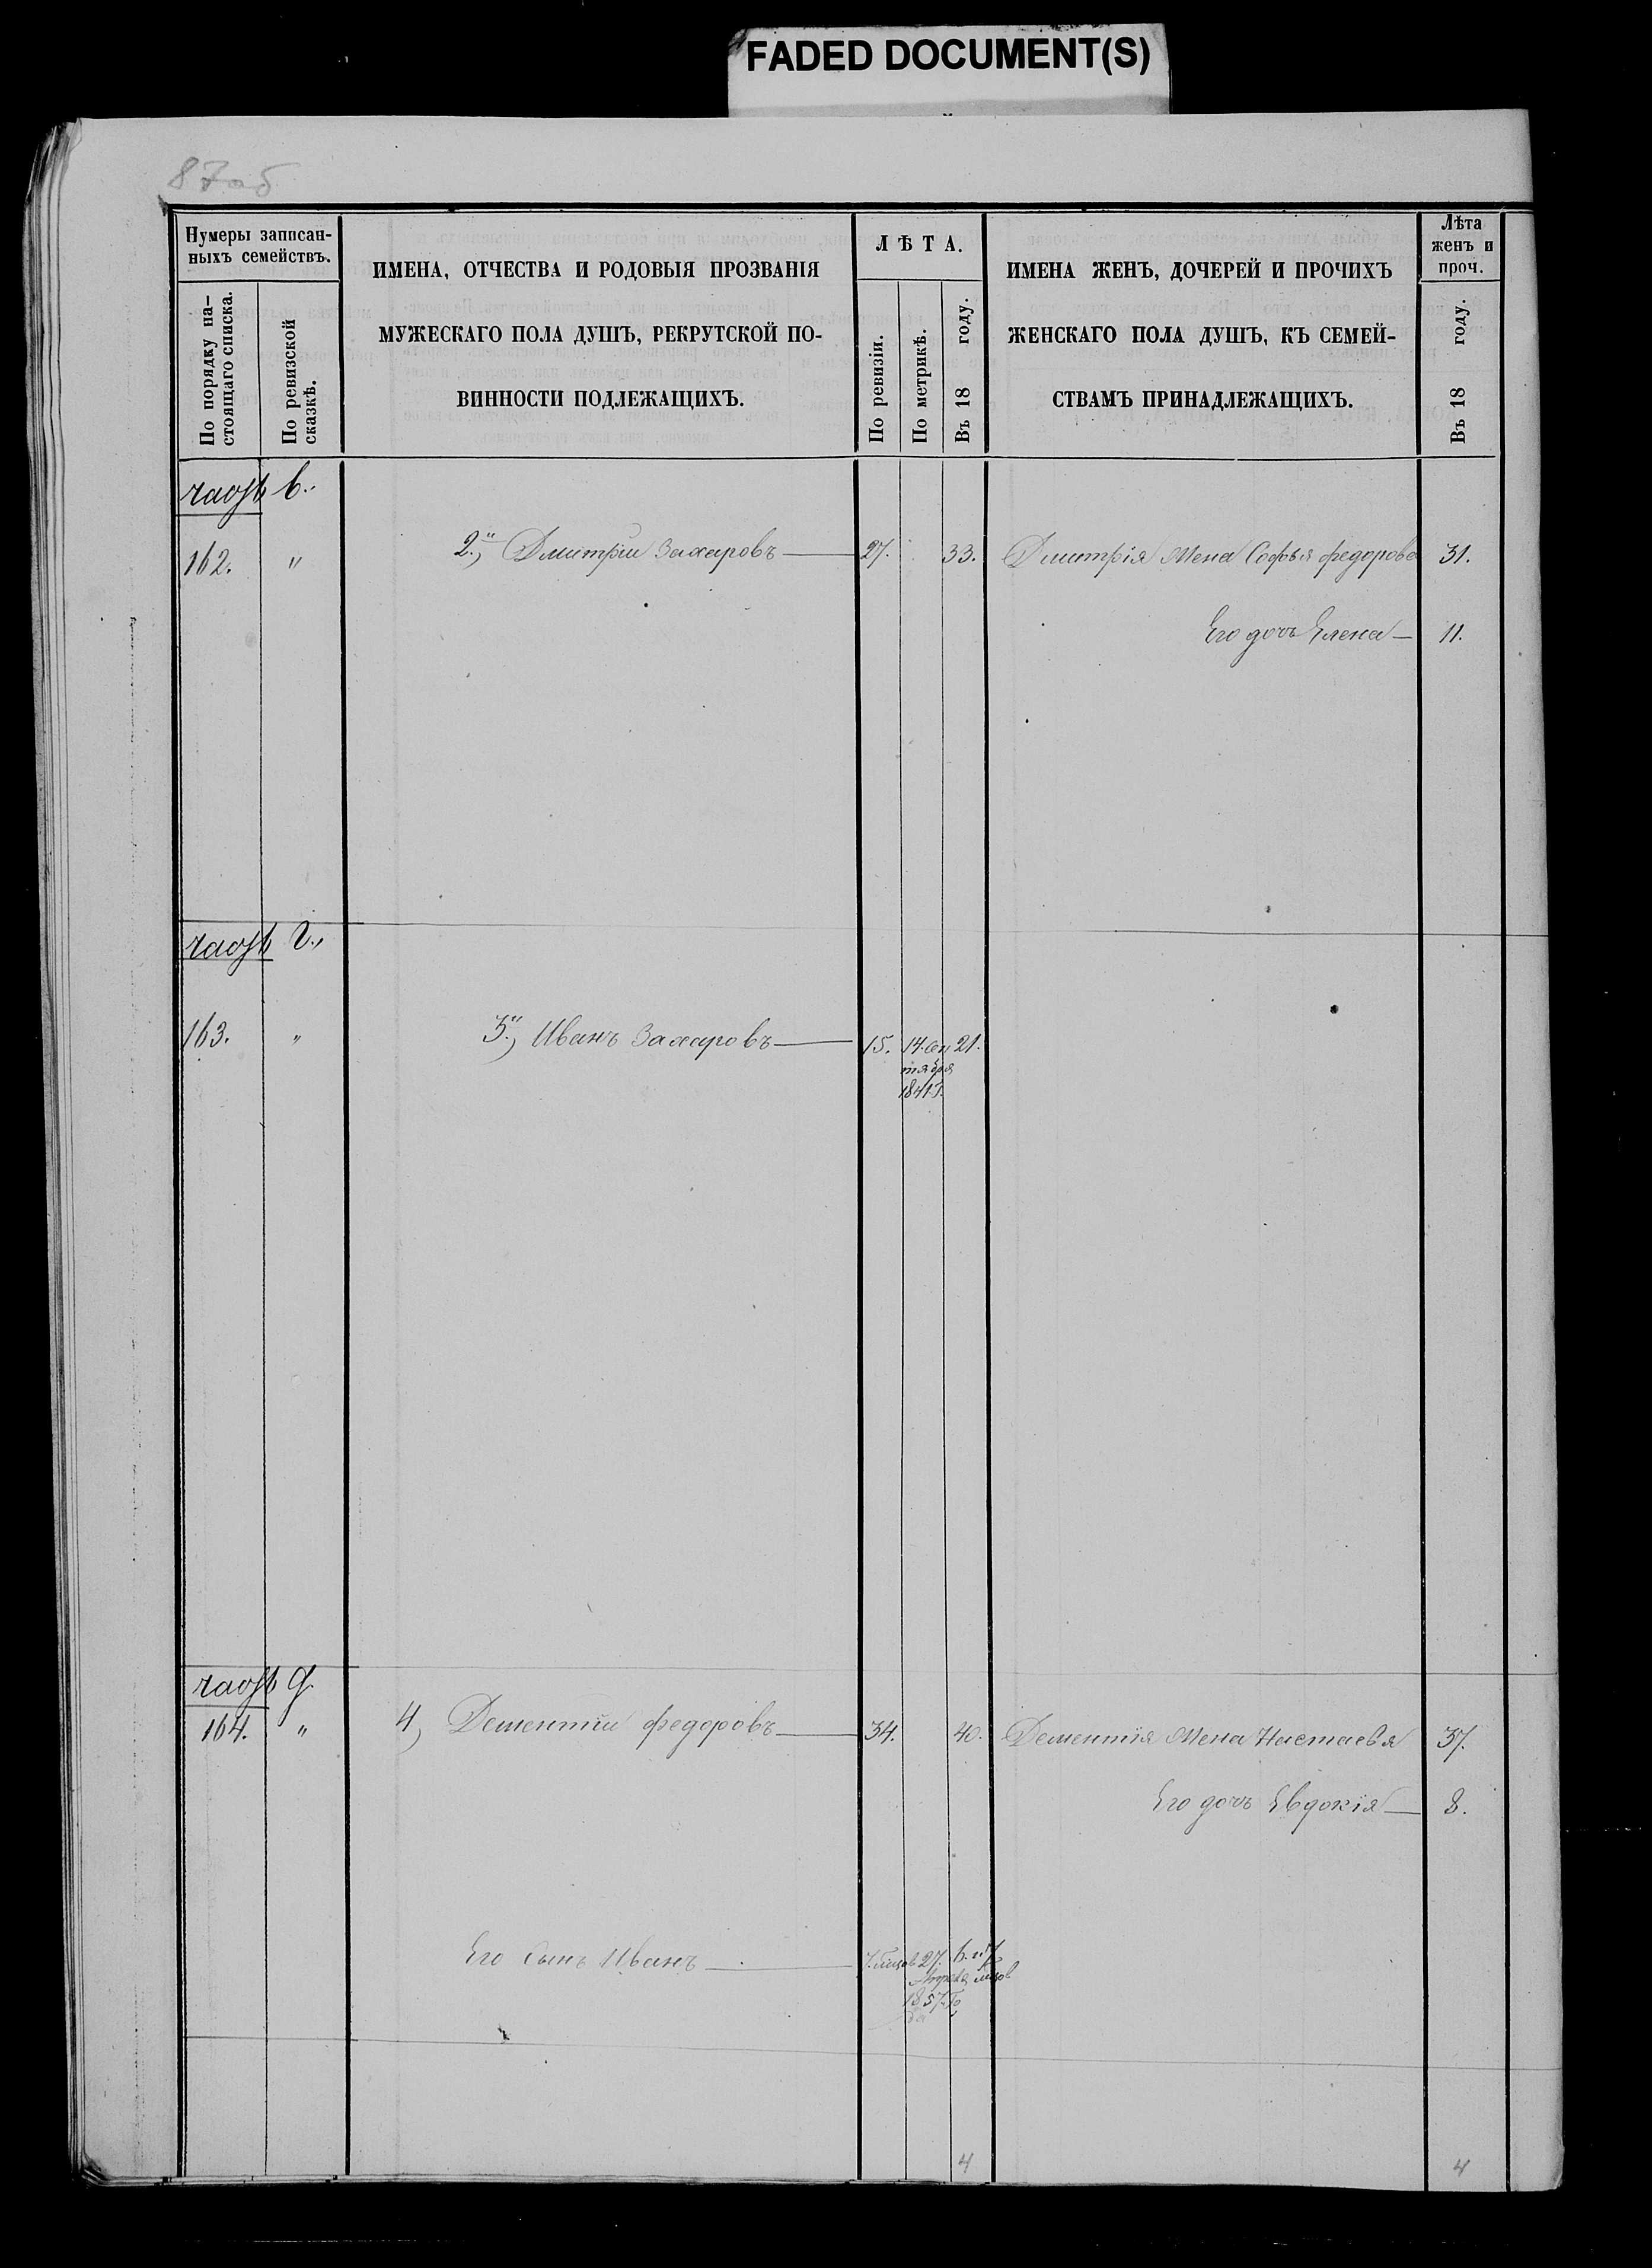 FADED DOCUMENT(S)
87об
Нумеры записан-
ныхъ семействъ.
По порядку на-
стоящаго списка.
По ревизской
сказкѣ.
ИМЕНА, ОТЧЕСТВА И РОДОВЫЯ ПРОЗВАНІЯ
МУЖЕСКАГО ПОЛА ДУШЪ, РЕКРУТСКОЙ ПО-
ВИННОСТИ ПОДЛЕЖАЩИХЪ.
ЛѢТА.
По ревизіи.
По метрикѣ.
Въ 18 году.
ИМЕНА ЖЕНЪ, ДОЧЕРЕЙ И ПРОЧИХЪ
ЖЕНСКАГО ПОЛА ДУШЪ, КЪ СЕМЕЙ-
СТВАМЪ ПРИНАДЛЕЖАЩИХЪ.
Лѣта
женъ и
проч.
Въ 18 году.
часть в.
162. " 2., Дмитрiи Захаровъ 27. 33. Дмитрія Жена Софья Федорова 31.
Его дочь Елена 11.
часть г.,
163. " 3., Иванъ Захаровъ 15. 14. Сен 21.
тября
1841 г.
часть д
164. " 4, Дементiи Федоровъ 34. 40. Дементія Жена Настасья 37.
Его дочь Евдокія 8.
Его Сынъ Иванъ 27. 6. и 7
мѣсов
1857 го
да
4 4